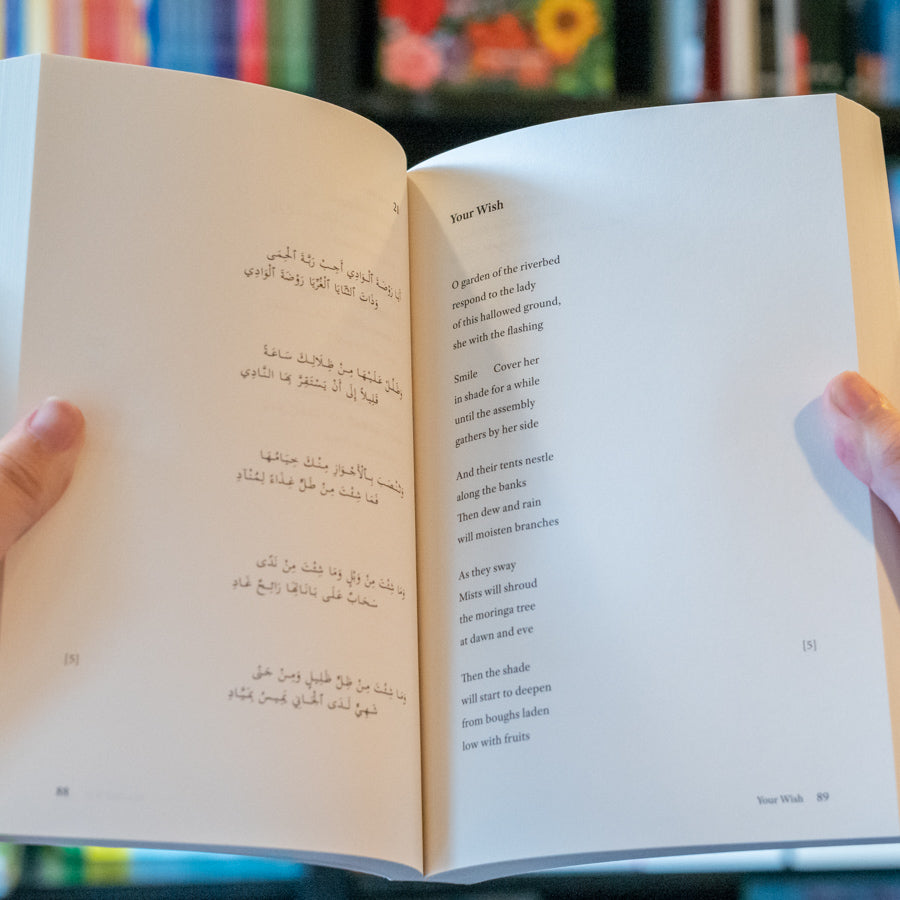 21
أَيَا رَوْضَةَ ٱلْوَادِي أَجِبْ رَبَّةَ ٱلْحِمَى
وَذَاتَ ٱلثَّنَايَا ٱلْغُرِّ يَا رَوْضَةَ ٱلْوَادِي
وَظَلِّلْ عَلَيْهَا مِنْ ظِلَالِكَ سَاعَةً
قَلِيلاً إِلَى أَنْ يَسْتَقِرَّ بِهَا ٱلنَّادِي
وَتُنْصَبَ بِٱلْأَجْوَازِ مِنْكَ خِيَامُهَا
فَمَا شِئْتَ مِنْ طَلٍّ غِذَاءً لِمُنْآدِ
وَمَا شِئْتَ مِنْ وَبْلٍ وَمَا شِئْتَ مِنْ نَدًى
سَحَابٌ عَلَى بَانَاتِهَا رَائِحٌ غَادِ
وَمَا شِئْتَ مِنْ ظِلٍّ ظَلِيلٍ وَمِنْ جَنًى
شَهِيٍّ لَدَى ٱلْجَانِي يَمِيسُ بِمَيَّادِ
[5]
88
Your Wish
O garden of the riverbed
respond to the lady
of this hallowed ground,
she with the flashing
Smile Cover her
in shade for a while
until the assembly
gathers by her side
And their tents nestle
along the banks
Then dew and rain
will moisten branches
As they sway
Mists will shroud
the moringa tree
at dawn and eve
Then the shade
will start to deepen
from boughs laden
low with fruits
[5]
Your Wish 89